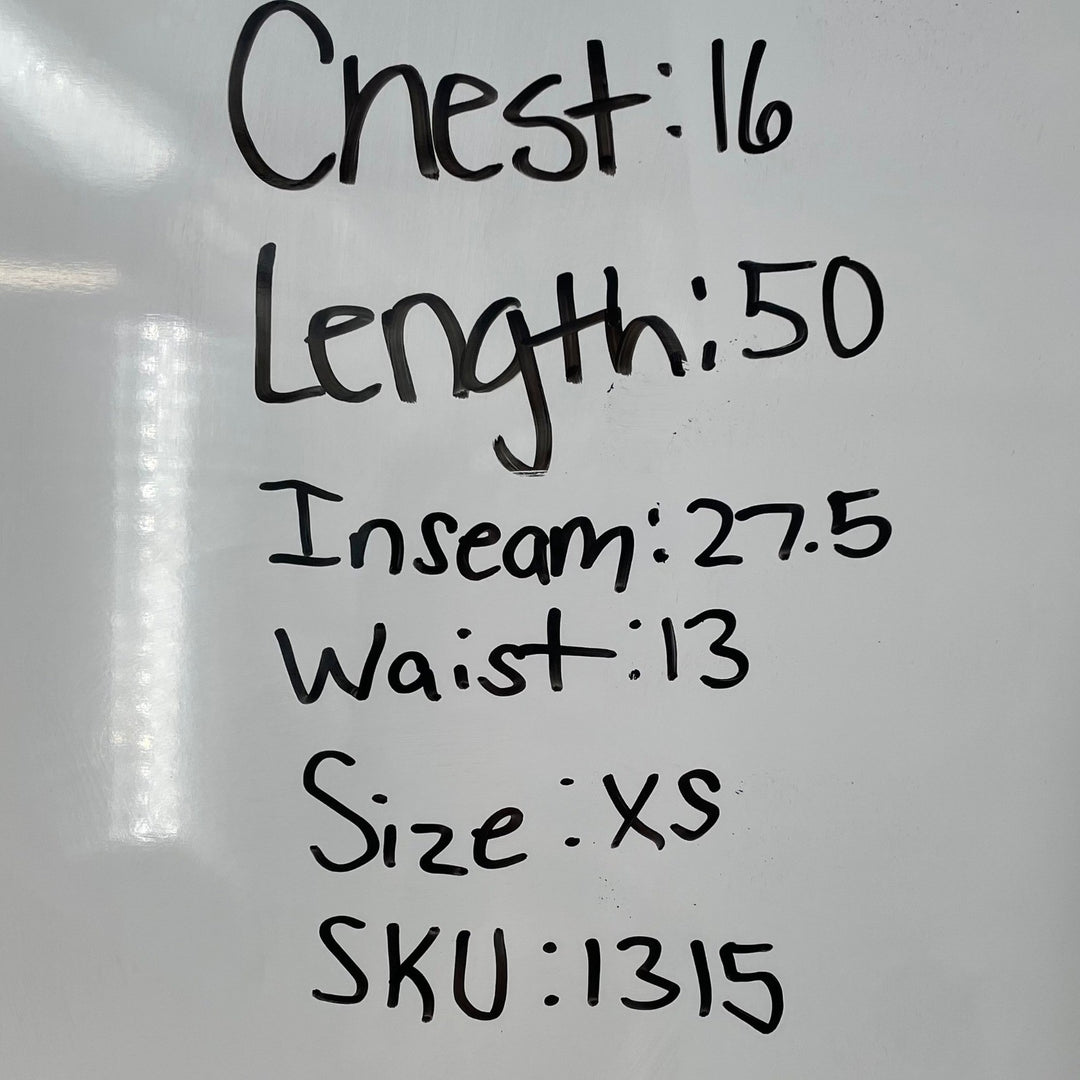 Chest: 16
Length: 50
Inseam: 27.5
Waist: 13
Size: XS
SKU: 1315